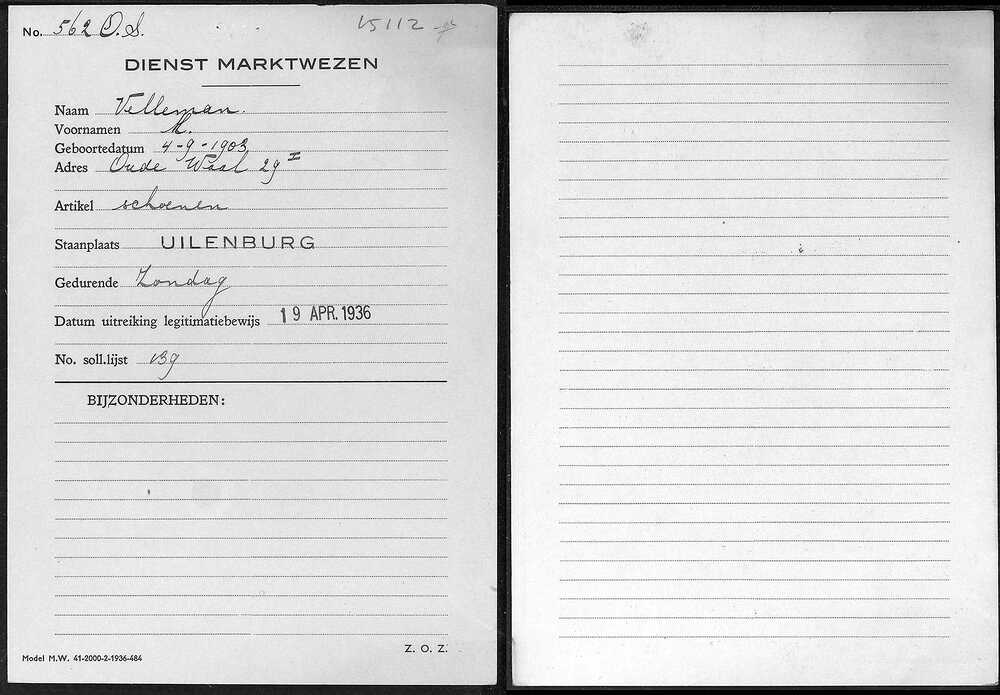 No. 562 O.S. 15112
DIENST MARKTWEZEN
Naam Velleman.
Voornamen M.
Geboortedatum 4-9-1903
Adres Oude Waal 29 I
Artikel schoenen
Staanplaats UILENBURG
Gedurende Zondag
Datum uitreiking legitimatiebewijs 19 APR. 1936
No. soll.lijst 139
BIJZONDERHEDEN:
Z. O. Z.
Model M.W. 41-2000-2-1936-484